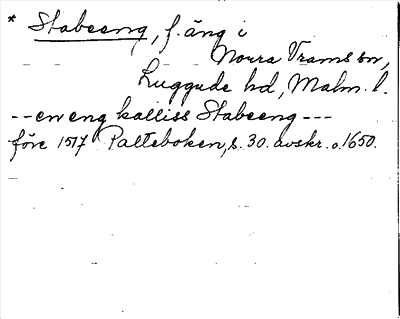 * Stabeeng, f. äng i
Norra Vrams sn,
Luggude hd, Malm. l.
-- en eng kalliss Stabeeng ---
före 1517 Palteboken, s. 30. avskr. o. 1650.